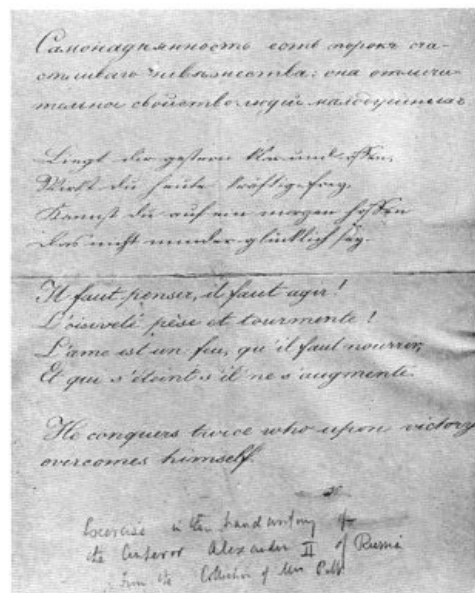 Самонадѣянность есть порокъ сча-
стливаго невѣжества: она отличи-
тельное свойство людей малодушныхъ
Liegt dir gestern klar und offen,
Wirkst du heute kräftig frey,
Kannst du auf ein morgen hoffen
Das nicht minder glücklich sey.
Il faut penser, il faut agir!
L'oisiveté pèse et tourmente!
L'ame est un feu, qu'il faut nourrir,
Et qui s'éteint s'il ne s'augmente.
He conquers twice who upon victory
overcomes himself.
Exercise in the handwriting of
the Emperor Alexander II of Russia
from the Collection of Mrs